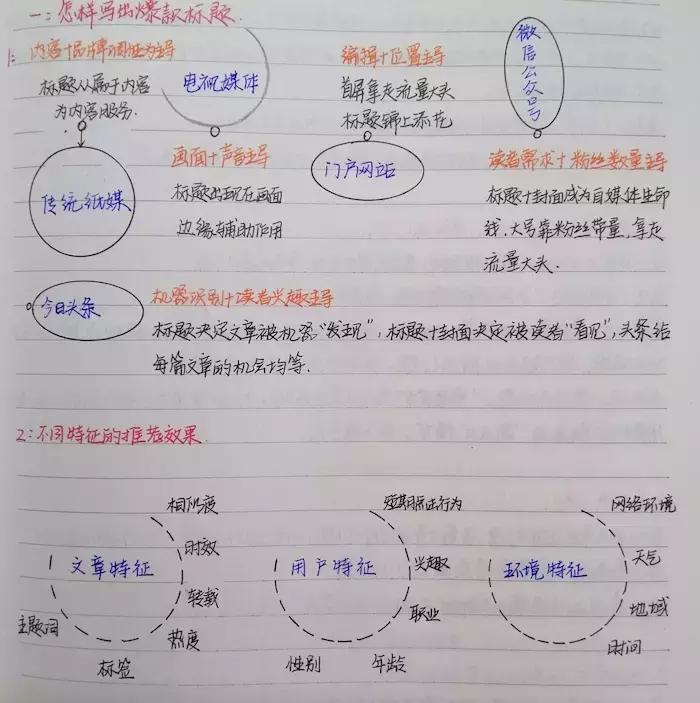 一：怎样写出爆款标题.
1：内容+品牌调性为主导
标题从属于内容
为内容服务.
传统纸媒
电视媒体
画面+声音主导
标题出现在画面
边缘辅助作用
编辑+位置主导
首屏拿走流量大头
标题锦上添花
门户网站
微信公众号
读者需求+粉丝数量主导
标题+封面成为自媒体生命
线，大号靠粉丝带量，拿走
流量大头.
今日头条
机器识别+读者兴趣主导
标题决定文章被机器“发现”，标题+封面决定被读者“看见”，头条给
每篇文章的机会均等.
2：不同特征的推荐效果.
文章特征
相似度
时效
转载
热度
标签
主题词
用户特征
短期点击行为
兴趣
职业
年龄
性别
环境特征
网络环境
天气
地域
时间